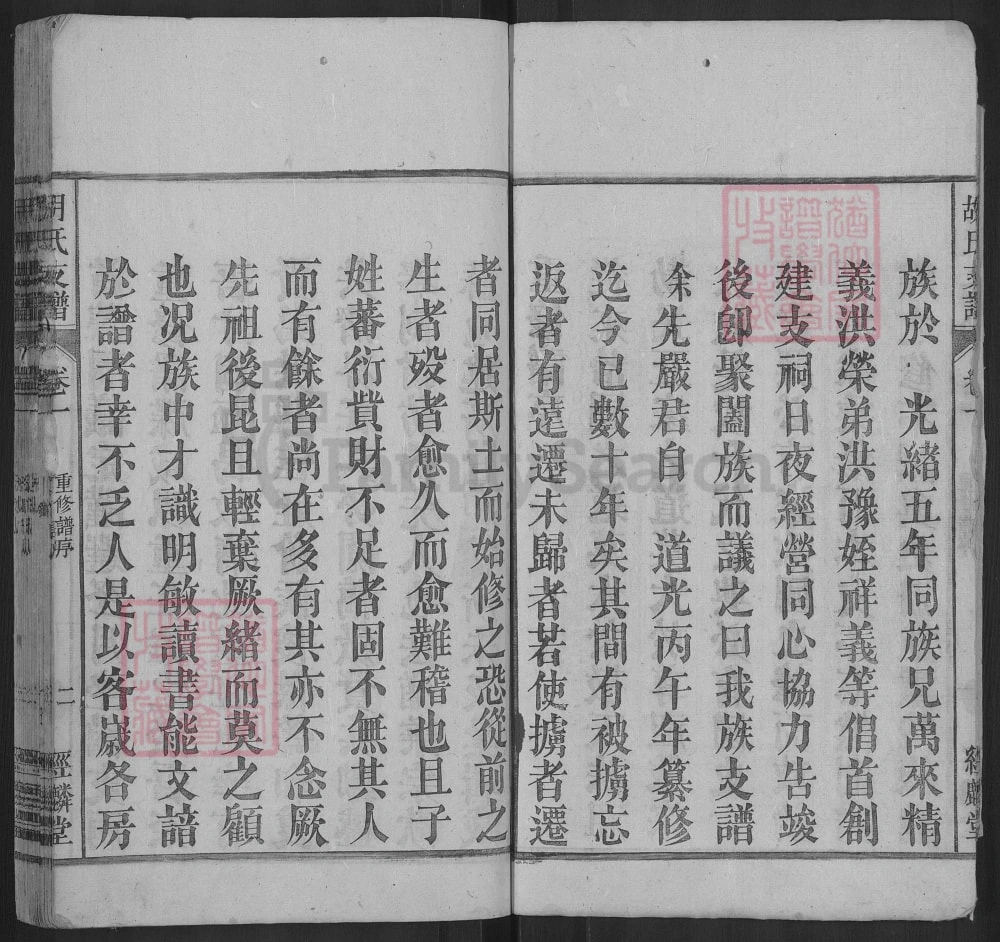 胡氏支譜
卷一
經麟堂
族於　光緒五年同族兄萬來精
義洪榮弟洪豫姪祥義等倡首創
建支祠日夜經營同心協力告竣
後卽聚闔族而議之曰我族支譜
余先嚴君自　道光丙午年纂修
迄今已數十年矣其間有被擄忘
返者有遠遷未歸者若使擄者遷
者同居斯土而始修之恐從前之
生者歿者愈久而愈難稽也且子
姓蕃衍貲財不足者固不無其人
而有餘者尚在多有其亦不念厥
先祖後昆且輕棄厥緒而莫之顧
也况族中才識明敏讀書能文諳
於譜者幸不乏人是以客歲各房
胡氏支譜
卷一
重修譜序
二
經麟堂
FamilySearch